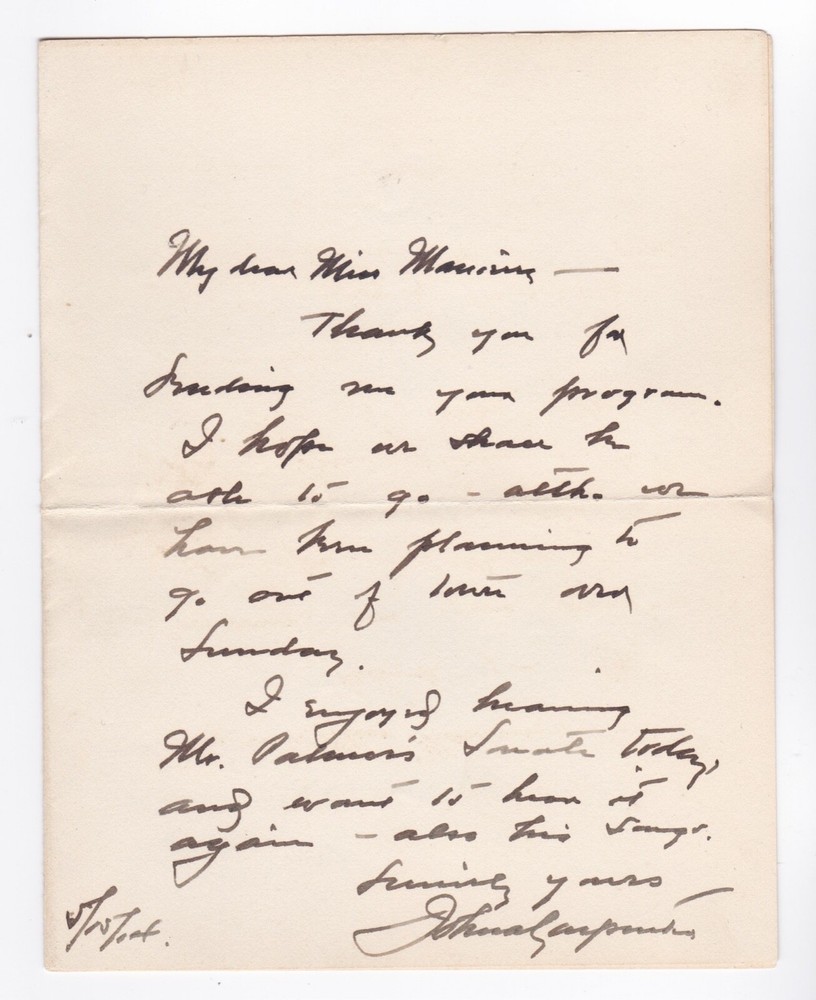 My dear Miss Manning —
Thank you for
sending me your program.
I hope we shall be
able to go - altho we
have been planning to
go out of town over
Sunday.
I enjoyed hearing
Mr. Palmer's Sonata today,
and want to hear it
again - also his songs.
Sincerely yours
John A Carpenter